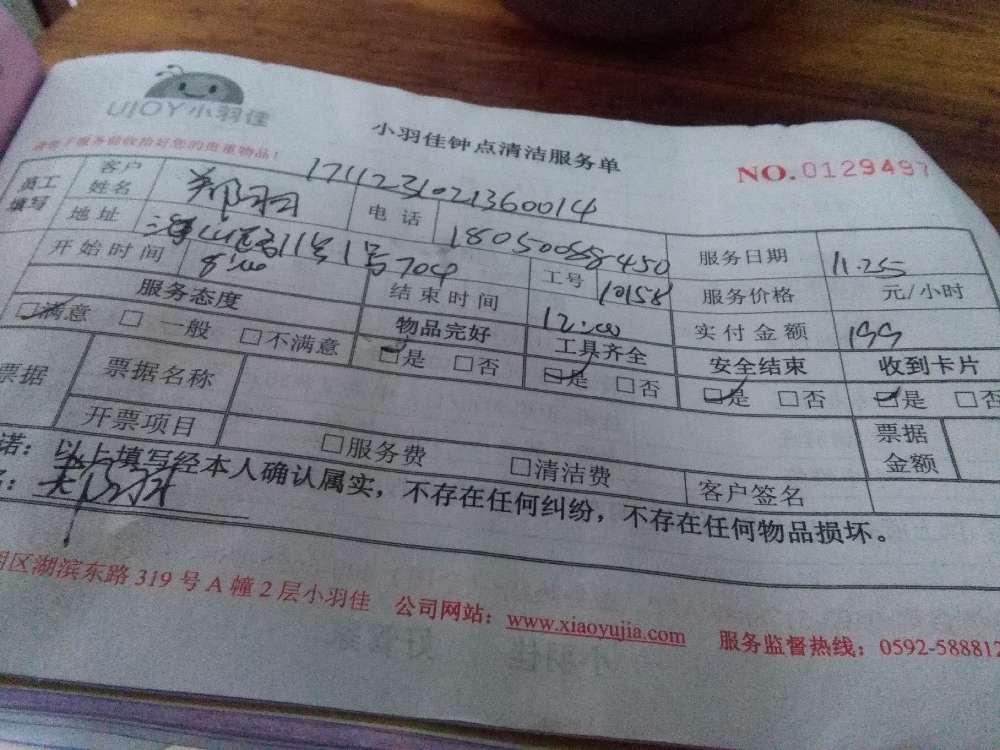 UJOY小羽佳
小羽佳钟点清洁服务单
NO.0129497
请您于服务前收拾好您的贵重物品!
1711231021360014
员工填写 客户姓名 郑羽 电话 18050088450 服务日期 11.25
地址 11号1号704 工号 10158 服务价格 元/小时
开始时间 8:00 结束时间 12:00 实付金额 199
服务态度 物品完好 工具齐全 安全结束 收到卡片
□满意 □一般 □不满意 □是 □否 □是 □否 □是 □否 □是 □否
票据 票据名称 票据金额
开票项目 □服务费 □清洁费 客户签名
诺：以上填写经本人确认属实，不存在任何纠纷，不存在任何物品损坏。
区湖滨东路319号A幢2层小羽佳 公司网站：www.xiaoyujia.com 服务监督热线：0592-588812